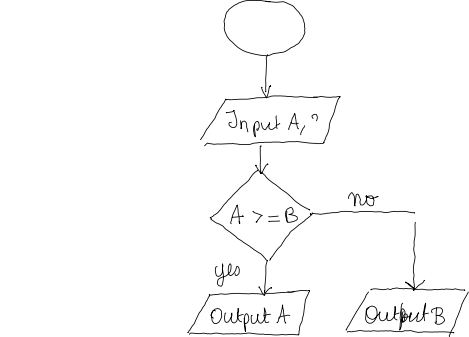 Input A, ?
A >= B
no
yes
Output A
Output B